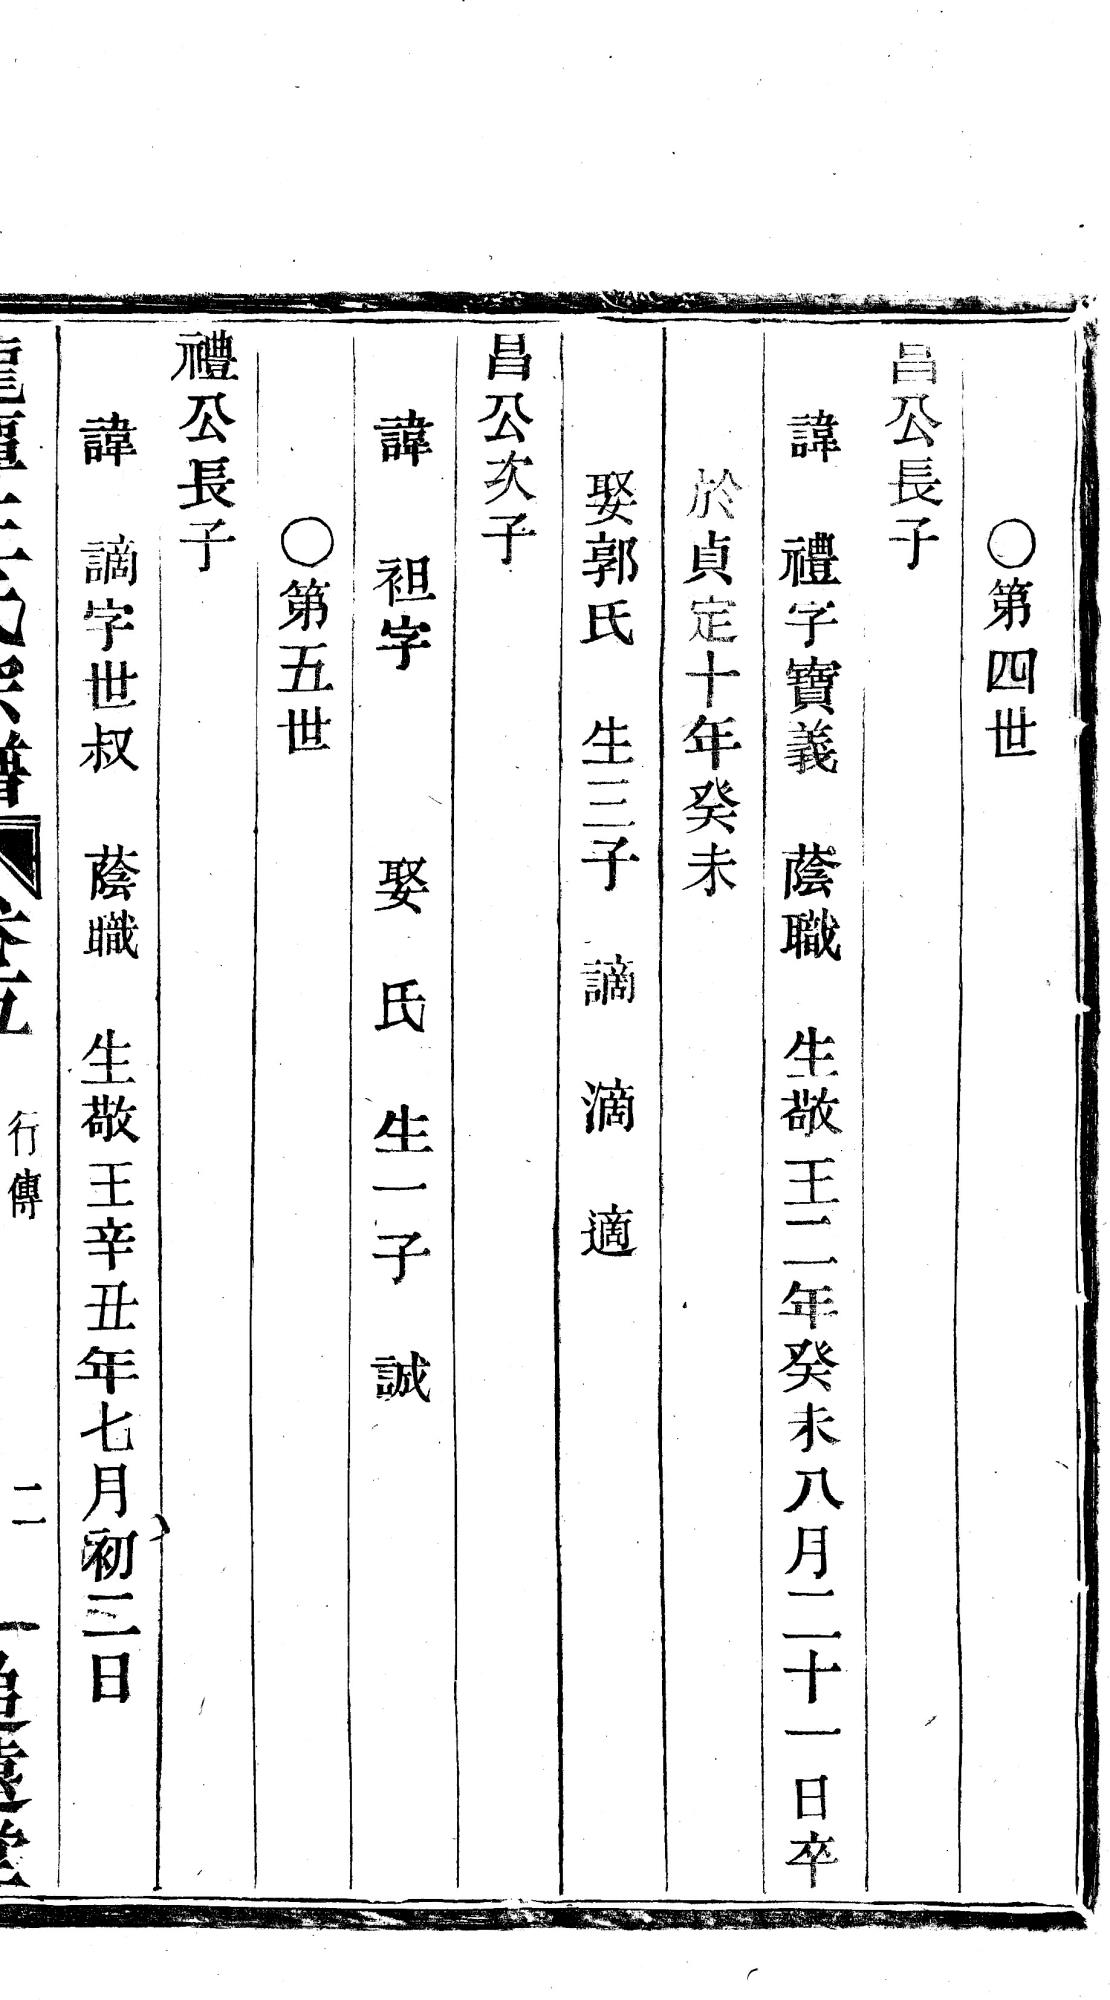 〇第四世
昌公長子
諱 禮字寶義 蔭職 生敬王二年癸未八月二十一日卒
於貞定十年癸未
娶郭氏 生三子 謫 滴 適
昌公次子
諱 袒字 娶 氏 生一子 誠
〇第五世
禮公長子
諱 謫字世叔 蔭職 生敬王辛丑年七月初三日
王氏宗譜 卷五 行傳 二 追遠堂